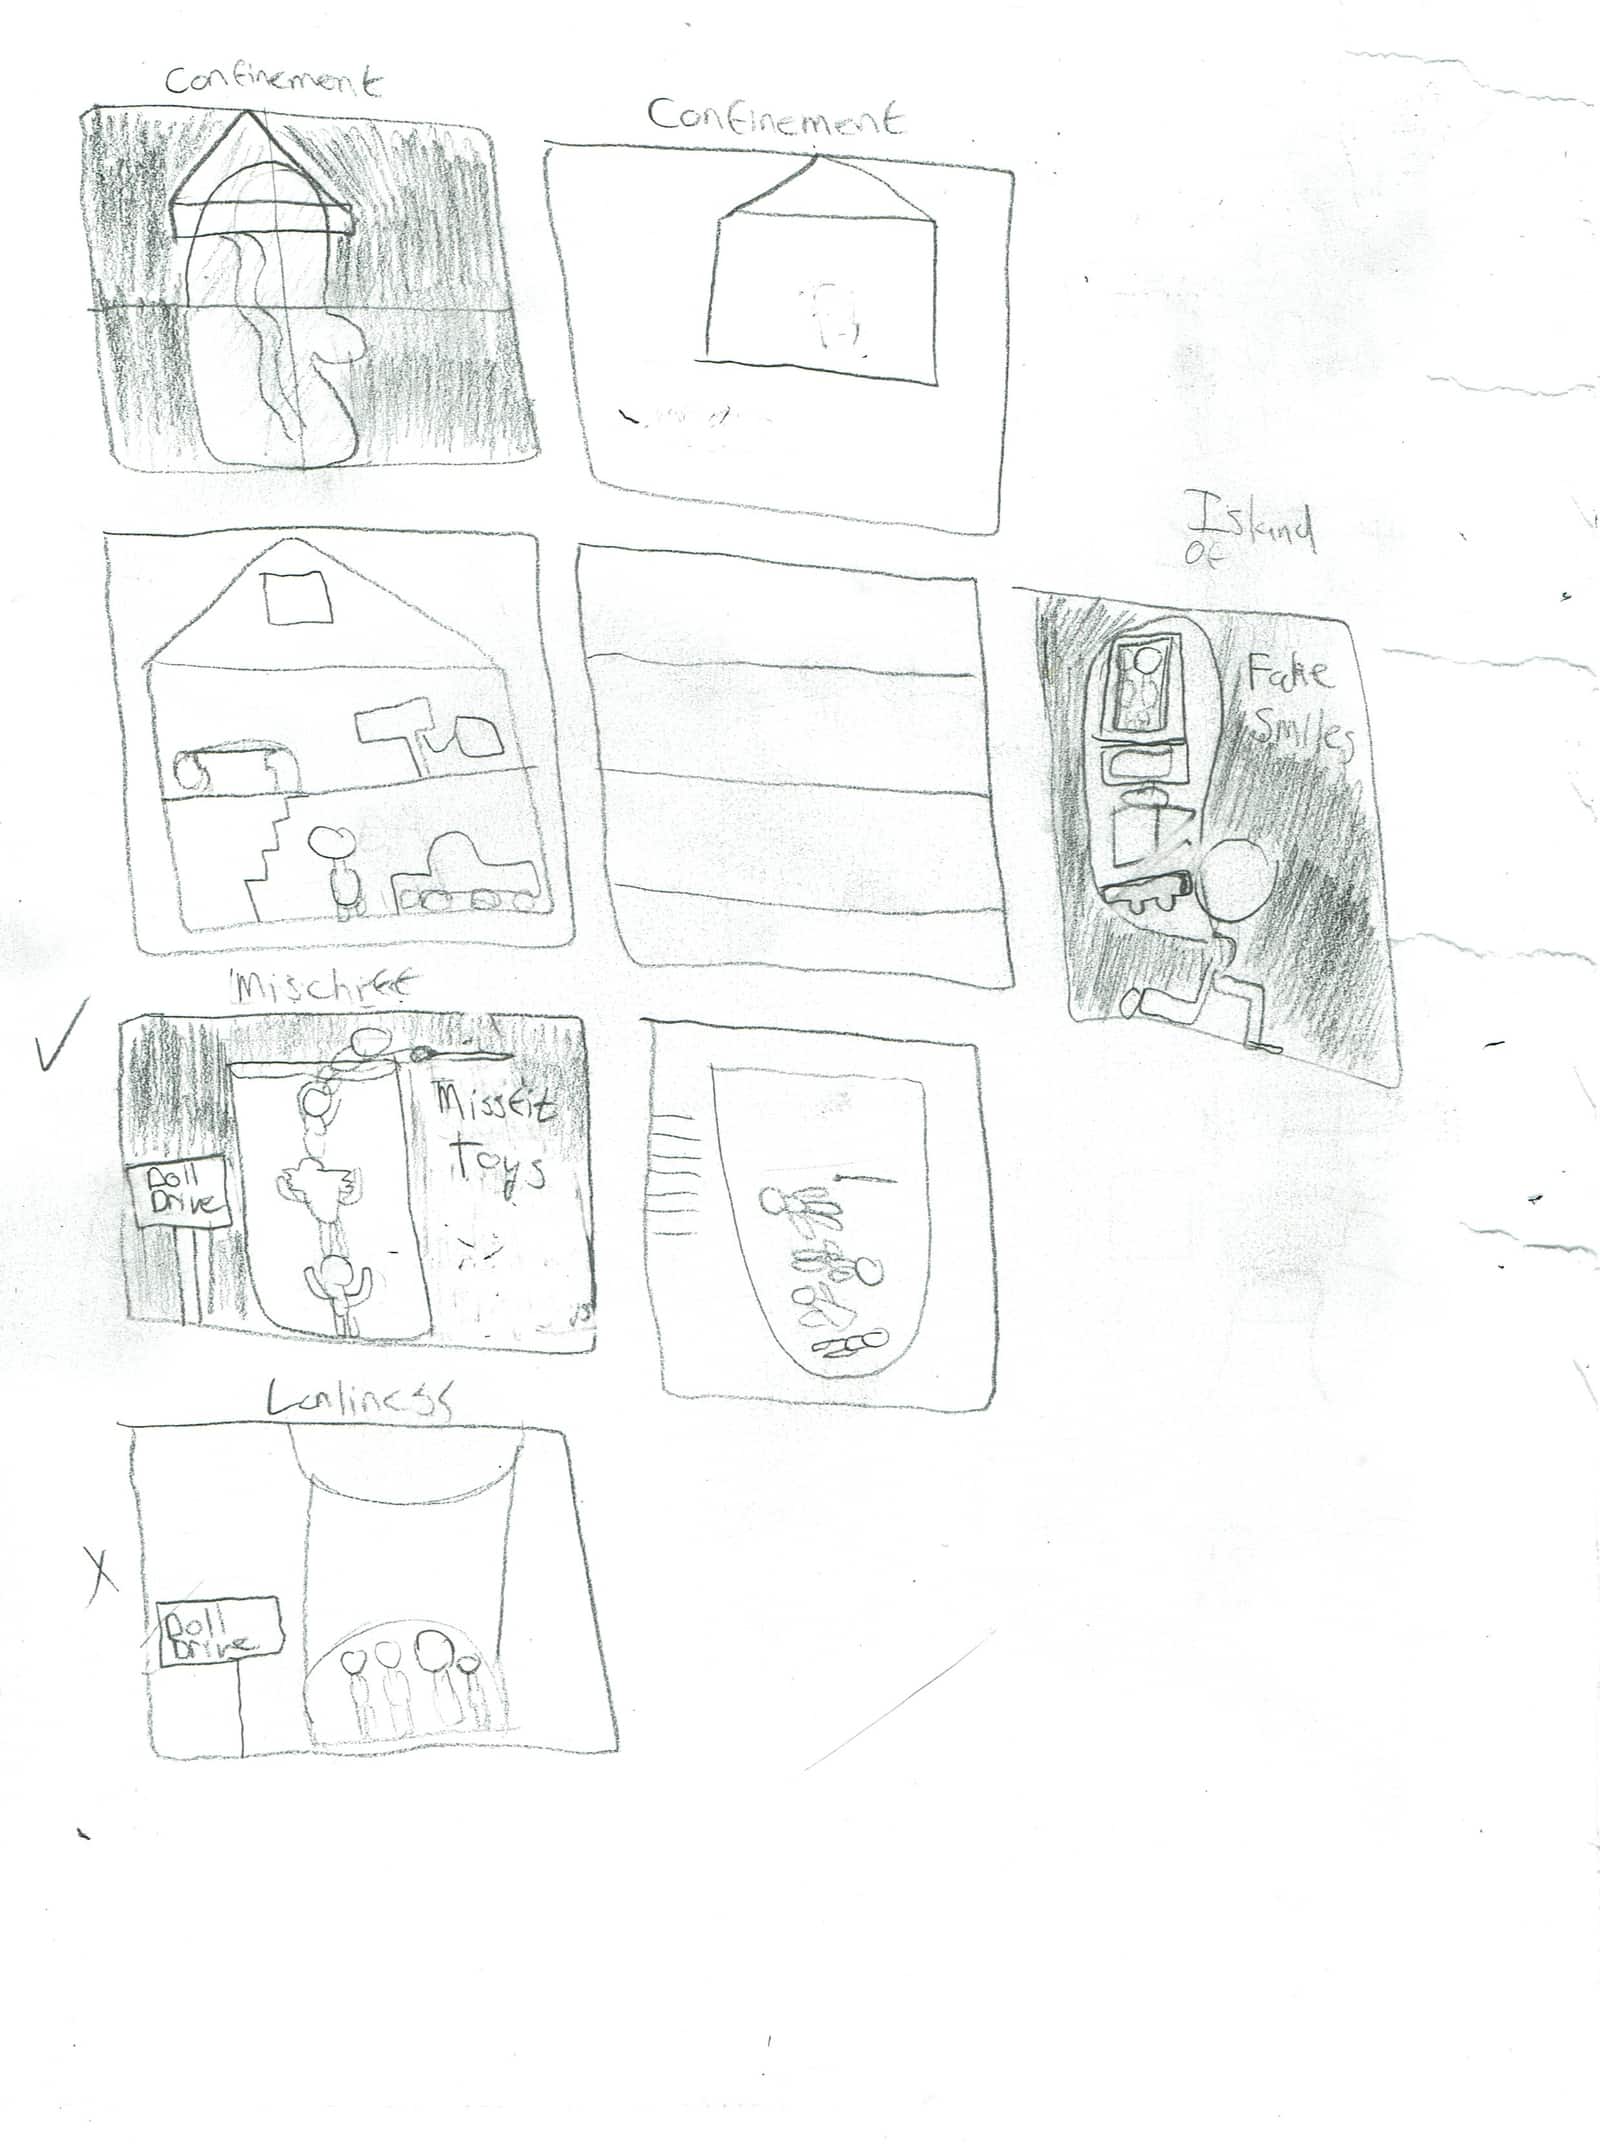 Confinement
Confinement
Island
Of
Fake
Smiles
Mischief
Missfit
Toys
Doll
Drive
Lonliness
Doll
Drive